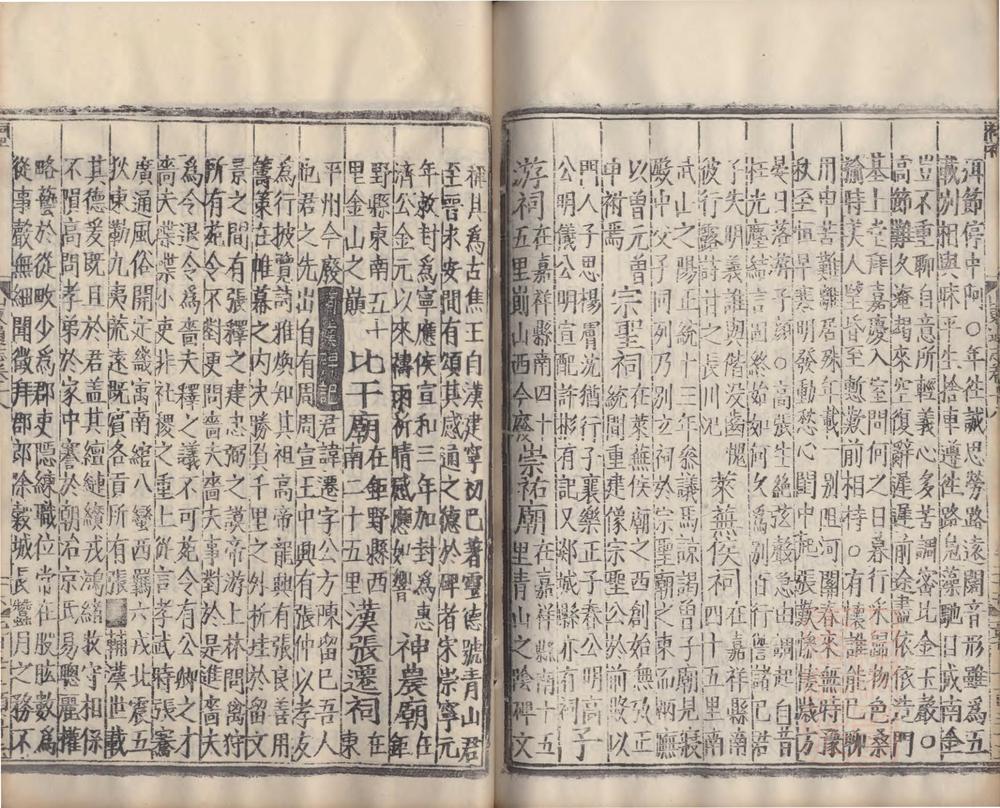 洱節停中阿○年徃誠思勞路遠闊音形雖為五
載別相與昧平生捨車遵徃路鳧藻馳目成南金
豈不重聊自意所輕義心多苦調密比金玉聲○
高節難久淹朅來空復辭遲遲前途盡依依造門
基上堂拜嘉慶入室問何之日暮行采歸物色桑
榆時美人望昏至慙歎前相持○有懷誰能已聊
用申苦難離居殊年載一別阻河關春來無時豫
秋至恒早寒明發動愁心閨中起長歎慘悽歲方
晏日落遊子顔○高張生絕弦聲急由調起自昔
枉光塵結言固終始如何久爲別百行諐諸己君
子失明義誰與偕没齒愧
彼行露詩甘之長川汜 萊蕪侯祠 在嘉祥縣南四十五里
武山之陽正統十三年叅議馬諒謁曾子廟見
殿中父子同列乃別立祠於宗聖廟之東而廡
以曾元曾申祔焉 宗聖祠 在萊蕪侯廟之西創始無攷正統間重建像宗聖公於前殿以
門人子思楊膚沈猶行子襄樂正子春公明高子
公明儀公明宣配許彬有記又鄒城縣亦有祠
游祠 在嘉祥縣南四十五里嵫山西今廢 崇祐廟 在嘉祥縣南十五里青山之陰碑文
稱其爲古焦王白漢建寧初已著靈德號青山君
至晉末安間有頌其感通之德於碑者宋崇寧元
年敕封爲寧應侯宣和三年加封爲惠
濟公金元以來禱雨祈晴感應如響 神農廟 在鉅
野縣東南五十里金山之巔 比干廟 在鉅野縣西南二十五里 漢張遷祠 在東
平州今廢 君諱遷字公方陳留已吾人
也君之先出自有周周宣王中興有張仲以孝友
爲行披覽詩雅煥知其祖高帝龍興有張良善用
籌策在帷幕之內決勝負千里之外析珪於留文
景之間有張釋之建忠弼之謨帝游上林問禽狩
所有苑令不對更問嗇夫嗇夫事對於是進嗇夫
爲令令退令爲嗇夫釋之議不可苑令有公卿之才
嗇夫喋喋小吏非社稷之重上從言孝武時張騫
廣通風俗開定畿寓南綰八蠻西羈六戎北震五
狄東勒九夷荒遠既賓各貢所有張 輔漢世載
其德爰既且於君盖其縺縺纘戎鴻緒牧守相係
不隕高問孝弟於家中謇於朝治京氏易聰麗權
略藝於從畋少爲郡吏隱練職位常在股肱數爲
從事聲無細聞徵拜郎郎除穀城長蠶月之務不